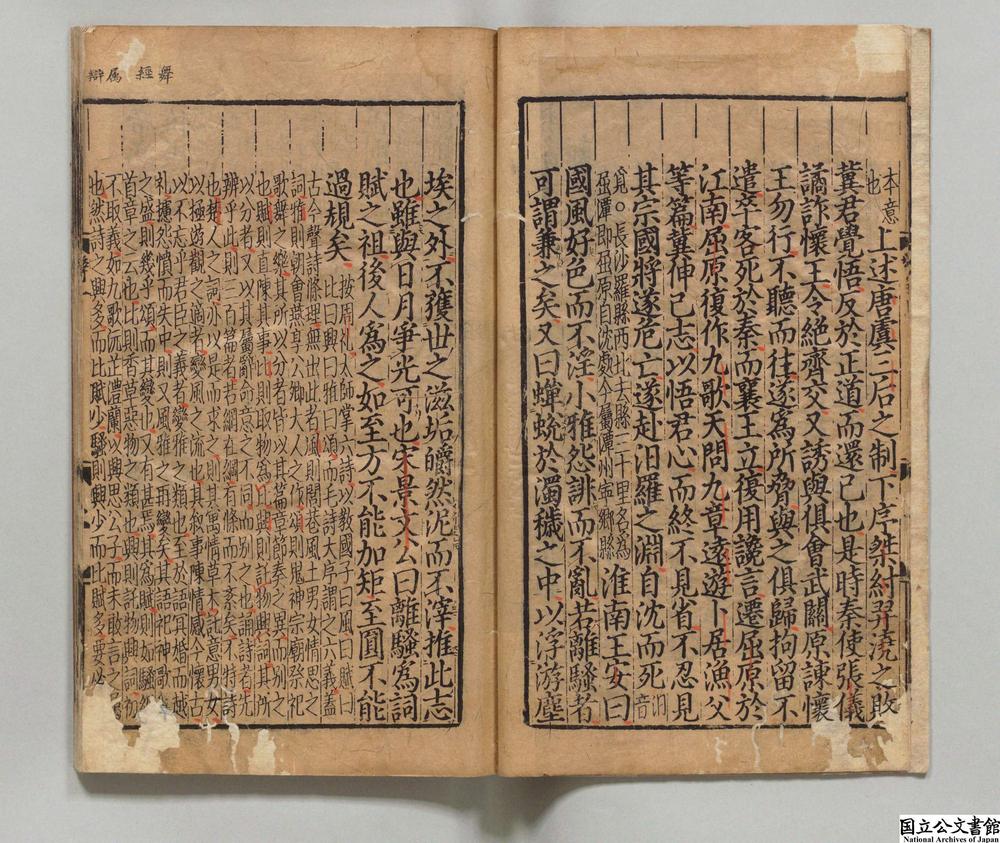 本意也上述唐虞三后之制下序桀紂羿澆之敗
冀君覺悟反於正道而還己也是時秦使張儀
譎詐懷王令絕齊交又誘與俱會武關原諫懷
王勿行不聽而往遂為所脅與之俱歸拘留不
遣卒客死於秦而襄王立復用讒言遷屈原於
江南屈原復作九歌天問九章遠遊卜居漁父
等篇冀伸己志以悟君心而終不見省不忍見
其宗國將遂危亡遂赴汨羅之淵自沈而死汨音
覓○長沙羅縣西北去縣三十里名為屈潭即屈原自沈處今屬潭州寧鄉縣淮南王安曰
國風好色而不淫小雅怨誹而不亂若離騷者
可謂兼之矣又曰蟬蛻於濁穢之中以浮游塵
舞 經 屬 辯
埃之外不獲世之滋垢皭然泥而不滓推此志
也雖與日月爭光可也宋景文公曰離騷為詞
賦之祖後人為之如至方不能加矩至圓不能
過規矣按周礼太師掌六詩以教國子曰風曰賦曰
比曰興曰雅曰頌而毛詩大序謂之六義蓋
古今聲詩條理無出此者風則閭巷風土男女情思之
詞雅則朝會燕享公卿大人之作頌則鬼神宗廟祭祀
歌舞之樂其所以分者皆以其篇章節奏之異而別之
也賦則直陳其事比則取物為比興則託物興詞其所
以分者又以其屬辭命意之不同而別之也誦詩者先
辨乎此則三百篇者若網在綱有條而不紊矣不特詩
也楚人之詞亦以是而求之則其寓情草木託意男女
以極遊觀之適者變風之流也其敘事陳情感今懷古
以不忘乎君臣之義者變雅之類也至於語冥婚而越
礼攄怨憤而失中則又風雅之再變矣其語祀神歌舞
之盛則幾乎頌而其變也又有甚焉其為賦則如騷經
首章之云也比則香草惡物之類也興則託物興詞初
不取義如九歌沅芷澧蘭以興思公子而未敢言之屬
也然詩之興多而比賦少騷則興少而比賦多要必
国立公文書館
National Archives of Japan